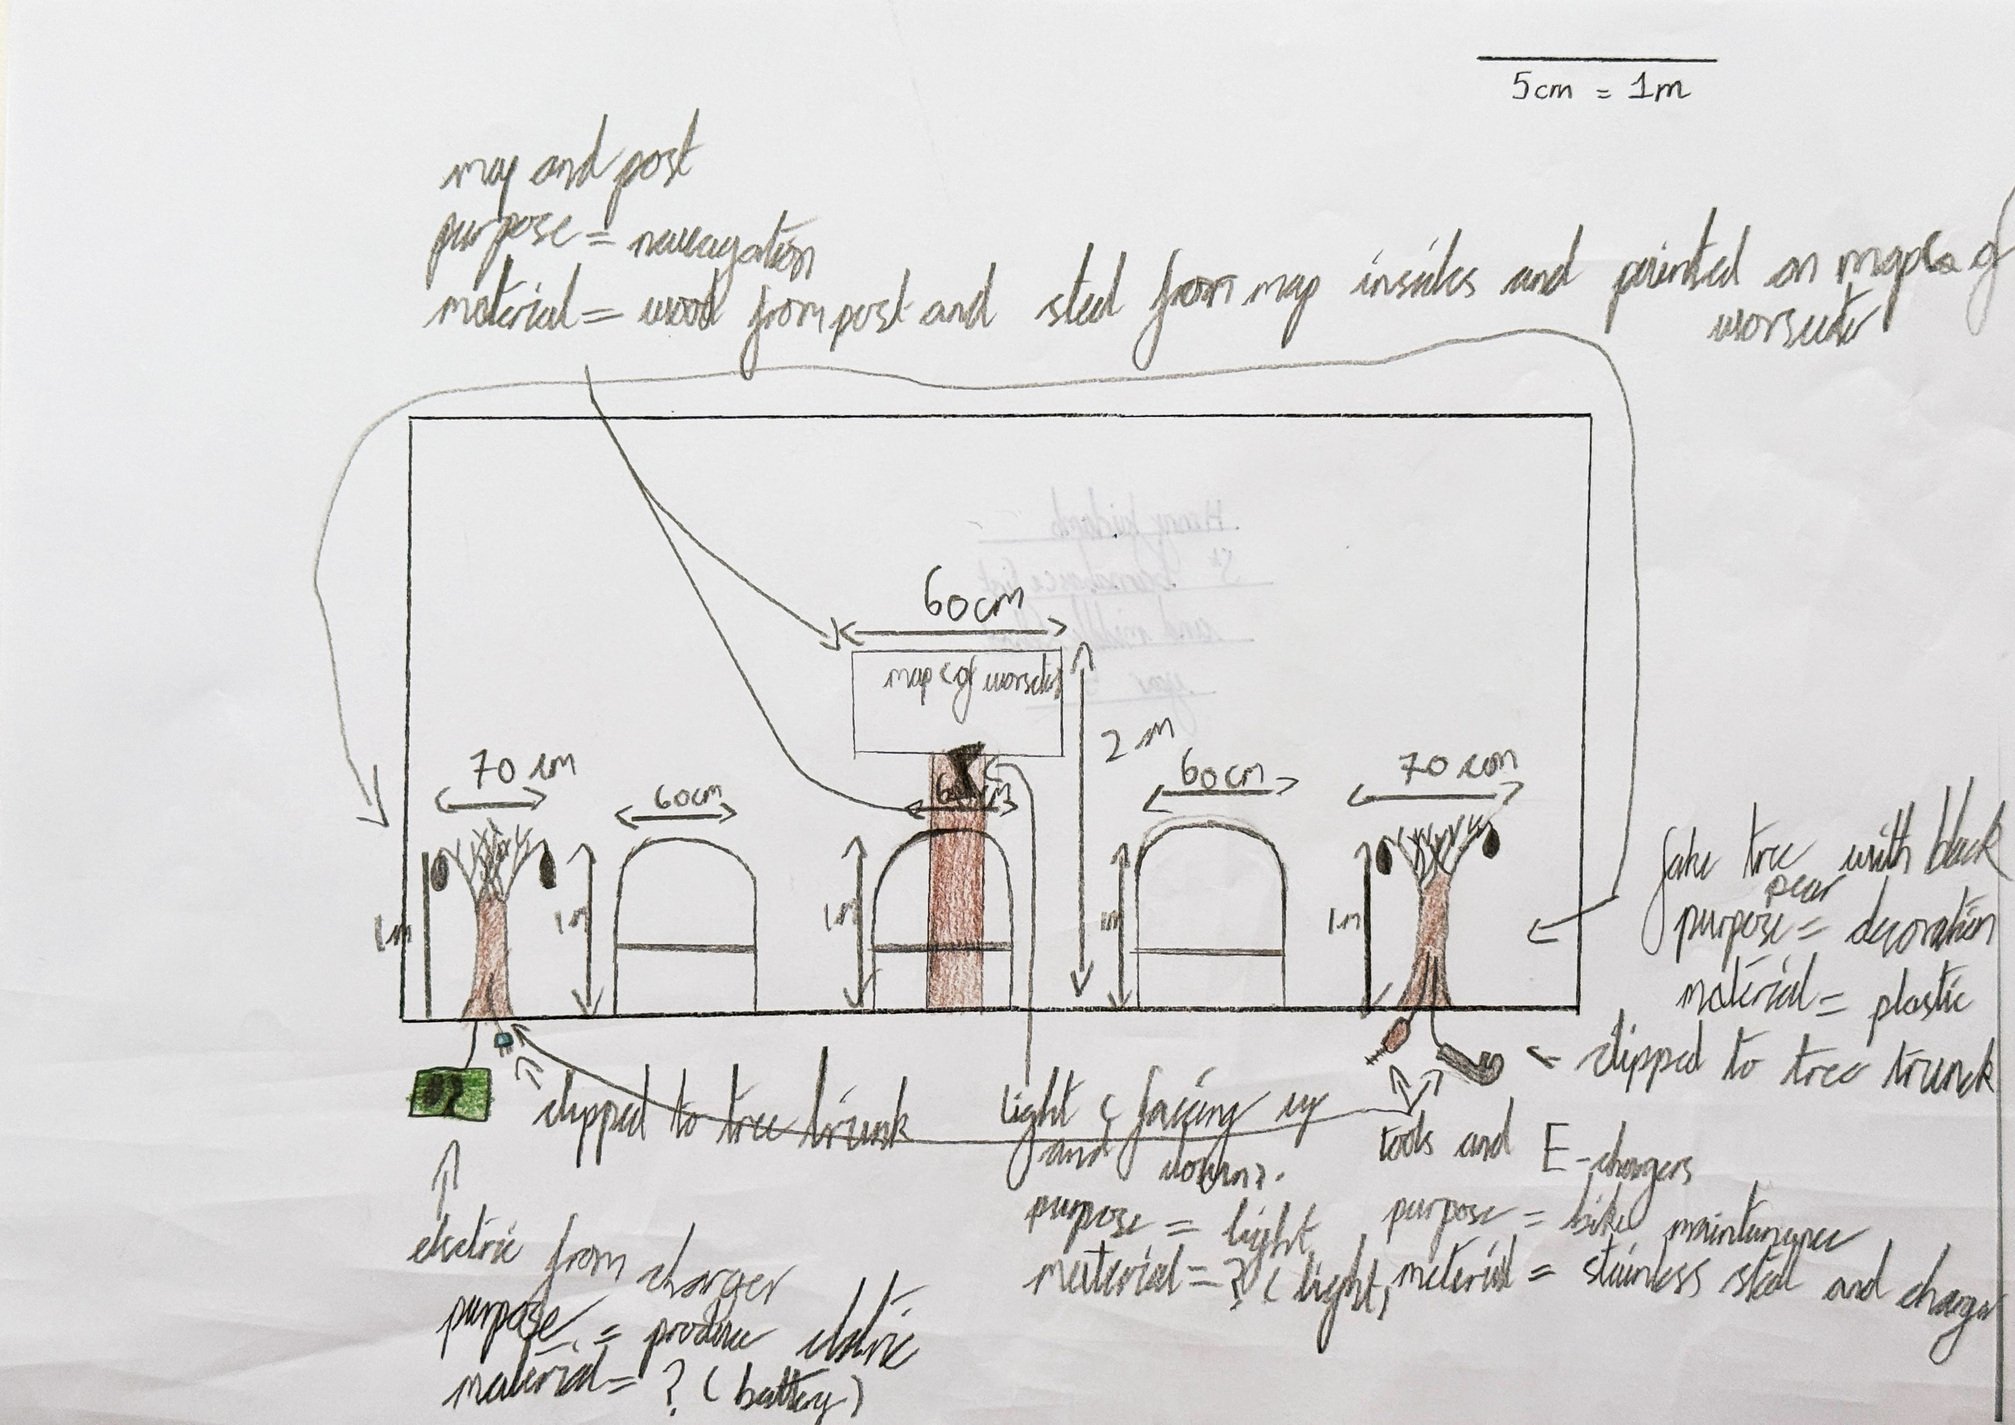 5cm = 1m
map and post
purpose = navagation
material = wood from post and steel from map insides and painted on maps of
worsester
60cm
map (of worsester
2m
70 cm
60cm
60cm
60cm
70 com
1m
1m
1m
1m
1m
fake tree with black
pear
purpose = decoration
material = plastic
clipped to tree trunk
clipped to tree trunk
light ( facing up
and down).
purpose = light
material = ? ( light,
tools and E-chargers
purpose = bike maintenance
material = stainless steel and charger
elsctric from charger
purpose = produce elctric
material = ? (battery)